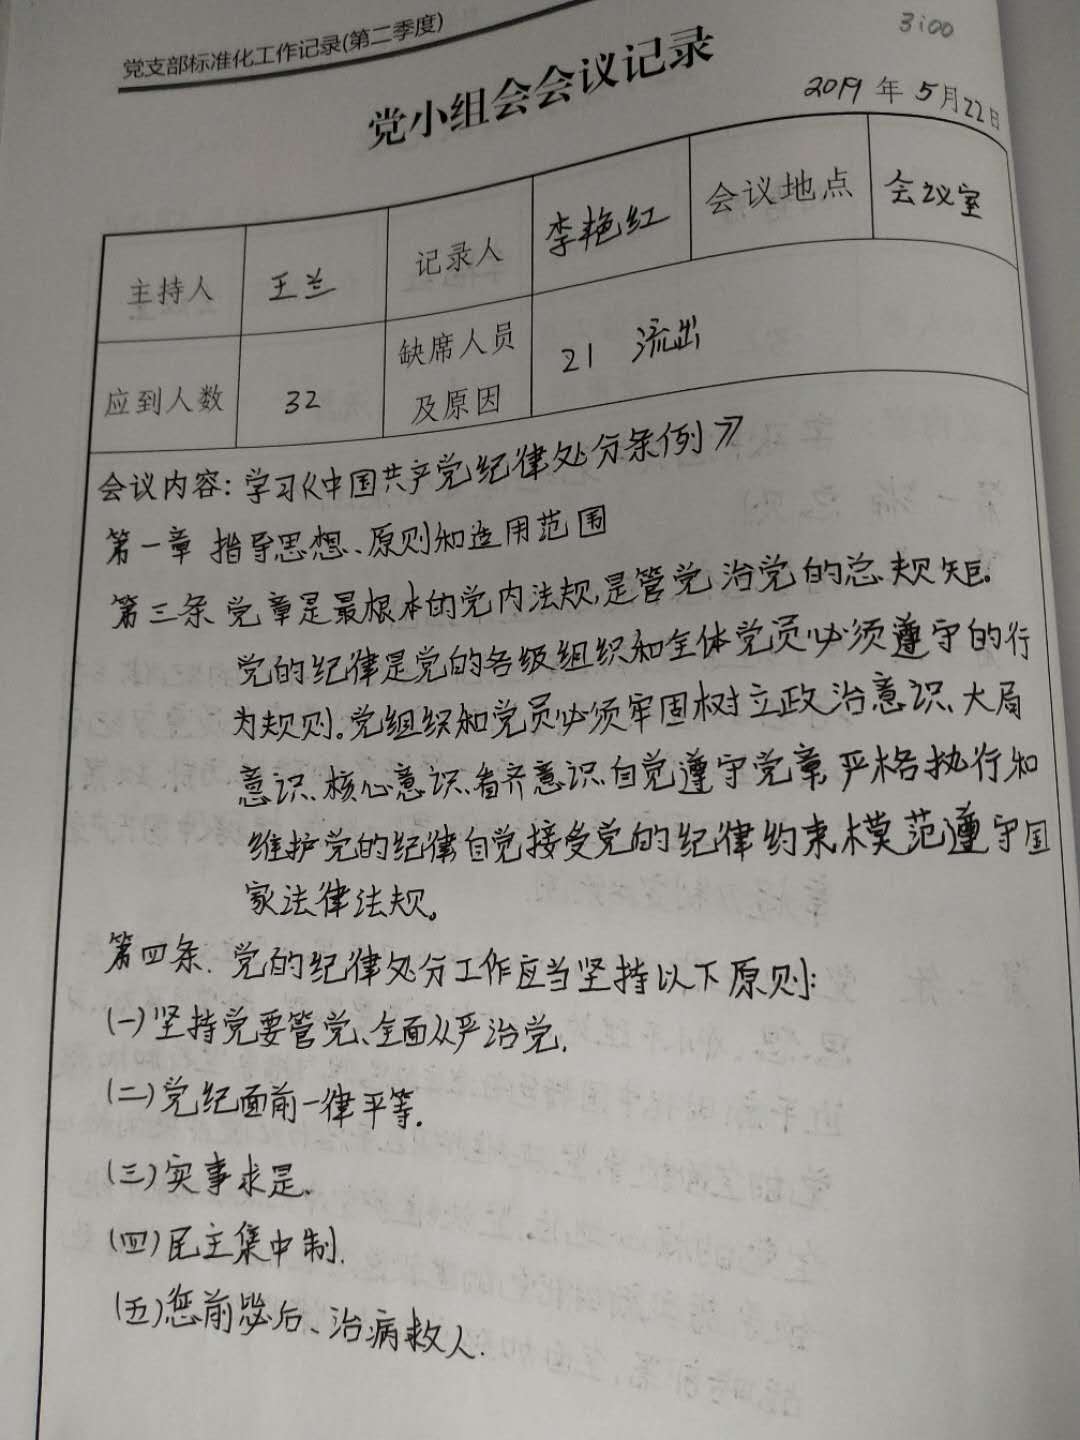 党支部标准化工作记录(第二季度)
3:00
党小组会会议记录
2019年5月22日
主持人 王兰 记录人 李艳红 会议地点 会议室
应到人数 32 缺席人员及原因 21 流出
会议内容: 学习《中国共产党纪律处分条例》
第一章 指导思想、原则和适用范围
第三条 党章是最根本的党内法规,是管党治党的总规矩。
党的纪律是党的各级组织和全体党员必须遵守的行
为规则。党组织和党员必须牢固树立政治意识、大局
意识、核心意识、看齐意识,自觉遵守党章,严格执行和
维护党的纪律,自觉接受党的纪律约束,模范遵守国
家法律法规。
第四条. 党的纪律处分工作应当坚持以下原则:
(一)坚持党要管党、全面从严治党.
(二)党纪面前一律平等.
(三)实事求是.
(四)民主集中制.
(五)惩前毖后、治病救人.